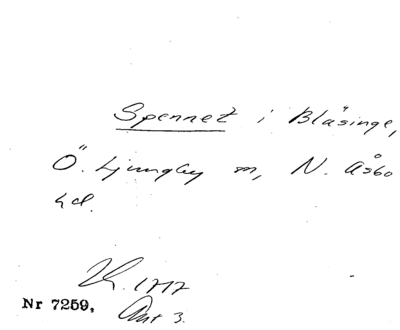 Spennet i Blåsinge,
Ö. Ljungby sn, N. Åsbo
hd.
1717
Nr 7259.